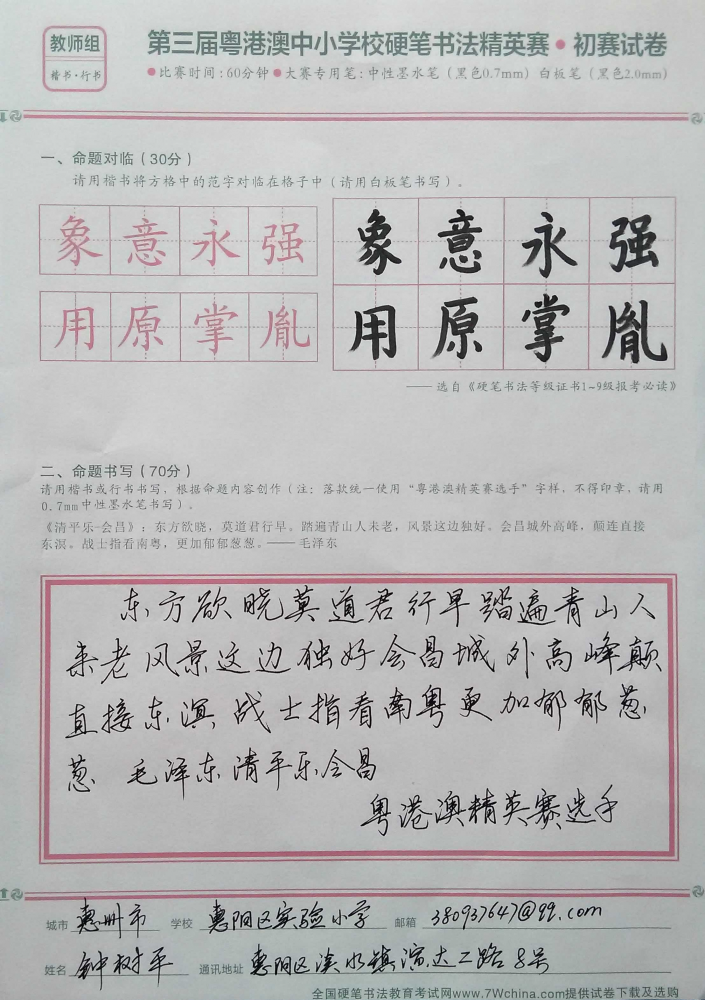 教师组
楷书·行书
第三届粤港澳中小学校硬笔书法精英赛·初赛试卷
●比赛时间:60分钟●大赛专用笔:中性墨水笔(黑色0.7mm)白板笔(黑色2.0mm)
一、命题对临(30分)
请用楷书将方格中的范字对临在格子中(请用白板笔书写)。
象意永强
用原掌胤
象意永强
用原掌胤
——选自《硬笔书法等级证书1~9级报考必读》
二、命题书写(70分)
请用楷书或行书书写,根据命题内容创作(注:落款统一使用“粤港澳精英赛选手”字样,不得印章,请用
0.7mm中性墨水笔书写)。
《清平乐·会昌》:东方欲晓,莫道君行早。踏遍青山人未老,风景这边独好。会昌城外高峰,颠连直接
东溟。战士指看南粤,更加郁郁葱葱。——毛泽东
东方欲晓莫道君行早踏遍青山人
未老风景这边独好会昌城外高峰颠
直接东溟战士指看南粤更加郁郁葱
葱 毛泽东清平乐会昌
粤港澳精英赛选手
城市 惠州市 学校 惠阳区实验小学 邮箱 380937647@qq.com
姓名 钟树平 通讯地址 惠阳区淡水镇演达二路8号
全国硬笔书法教育考试网www.7Wchina.com提供试卷下载及选购